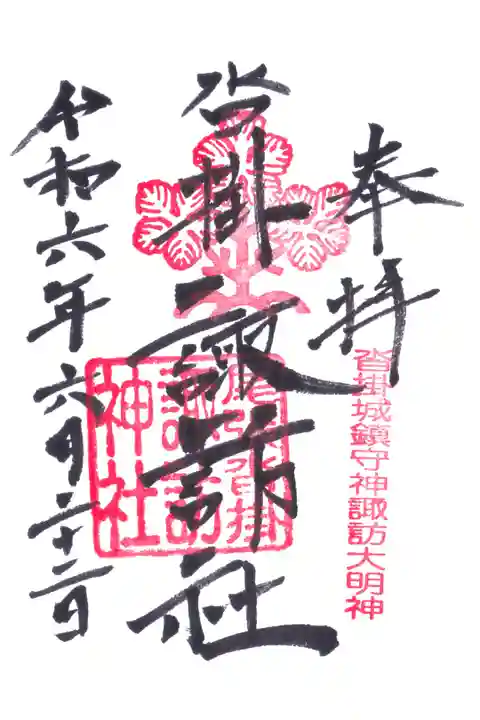 奉拝
沓掛城鎮守神諏訪大明神
沓掛諏訪社
尾張沓掛
諏訪
神社
令和六年六月二十二日